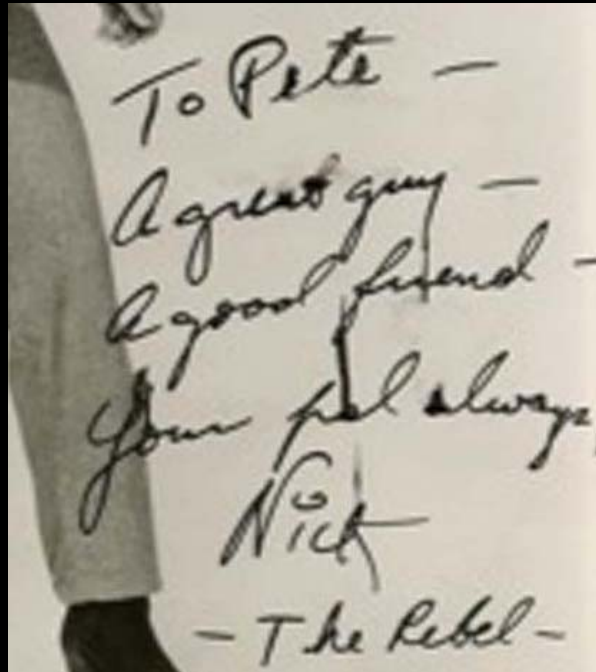 To Pete –
A great guy –
A good friend –
Your pal always,
Nick
– The Rebel –